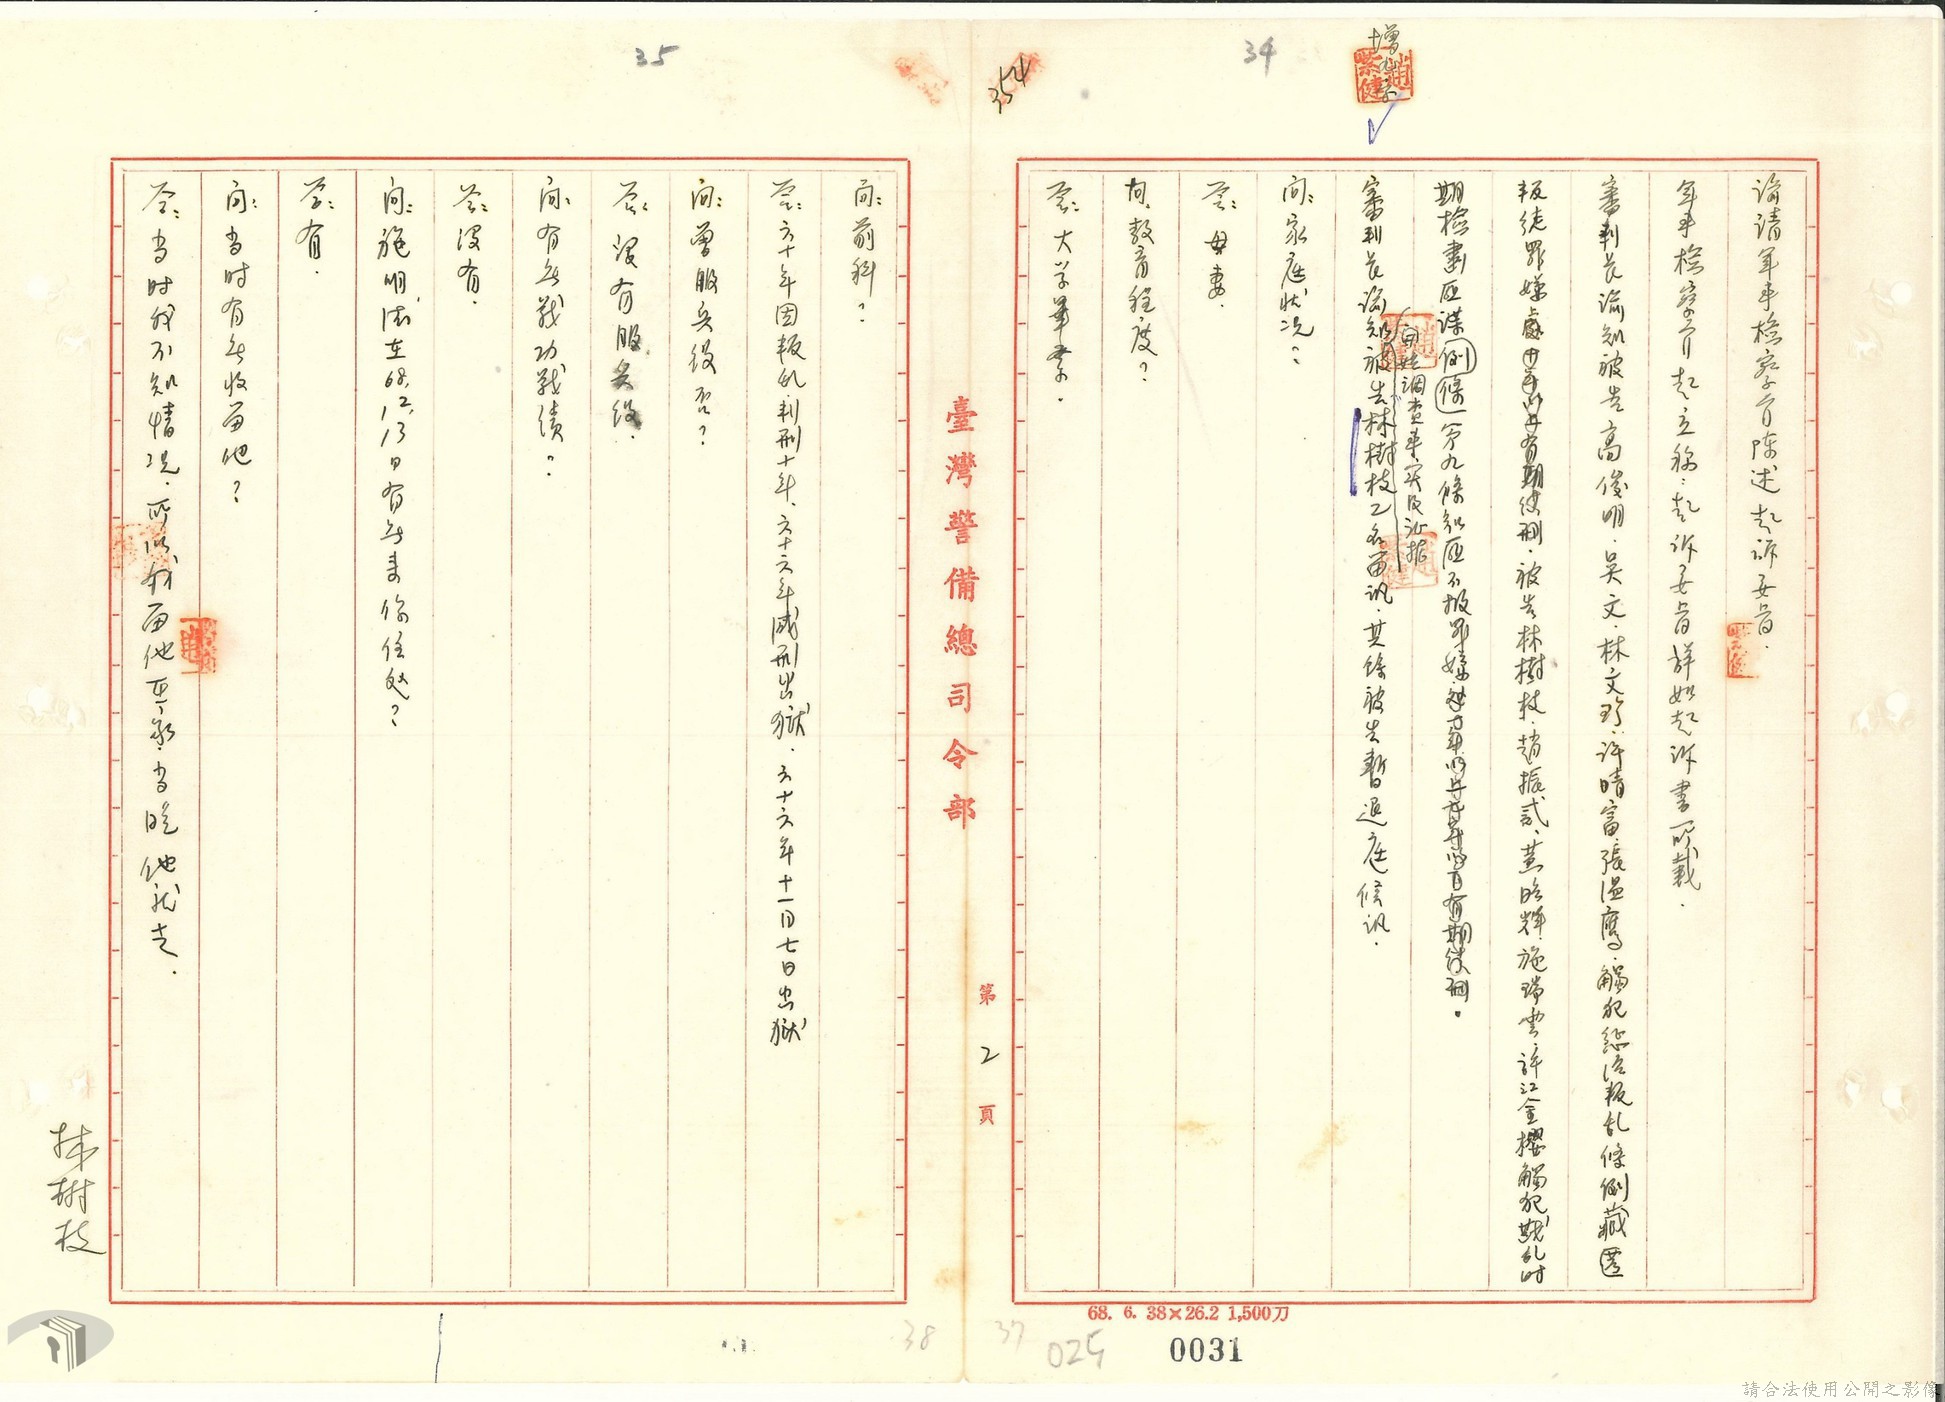 35
34
354
增九字
諭請軍事檢察官陳述起訴要旨.
軍事檢察官起立稱:起訴要旨詳如起訴書所載.
審判長諭知被告高俊明.吳文.林文珍.許晴富.張温鷹.觸犯懲治叛乱條例藏匿
叛徒罪嫌
有期徒刑.被告林樹枝.趙振貳.黃昭輝.施瑞雲.許江金櫻觸犯戡乱时
期檢肅匪諜條例第九條知匪不报罪嫌
有期徒刑。
開始調查事实及证據
審判長諭知被告林樹枝乙名留讯.其餘被告暫退庭候讯.
问:家庭状况?
答:母妻.
问.教育程度?
答:大学畢業.
臺灣警備總司令部
第2頁
问:前科?
答:六十年因叛乱.判刑十年、六十六年減刑出獄.六十六年十一月七日出獄
问:曾服兵役否?
答:没有服兵役.
问:有无戰功戰績?
答:没有.
问:施明德在68.12.13日有无来你住处?
答:有.
问:当时有无收留他?
答:当时我不知情况.所以我留他在家.当晚他就走.
林樹枝
68. 6. 38×26.2 1,500刀
38
37
025
0031
請合法使用公開之影像